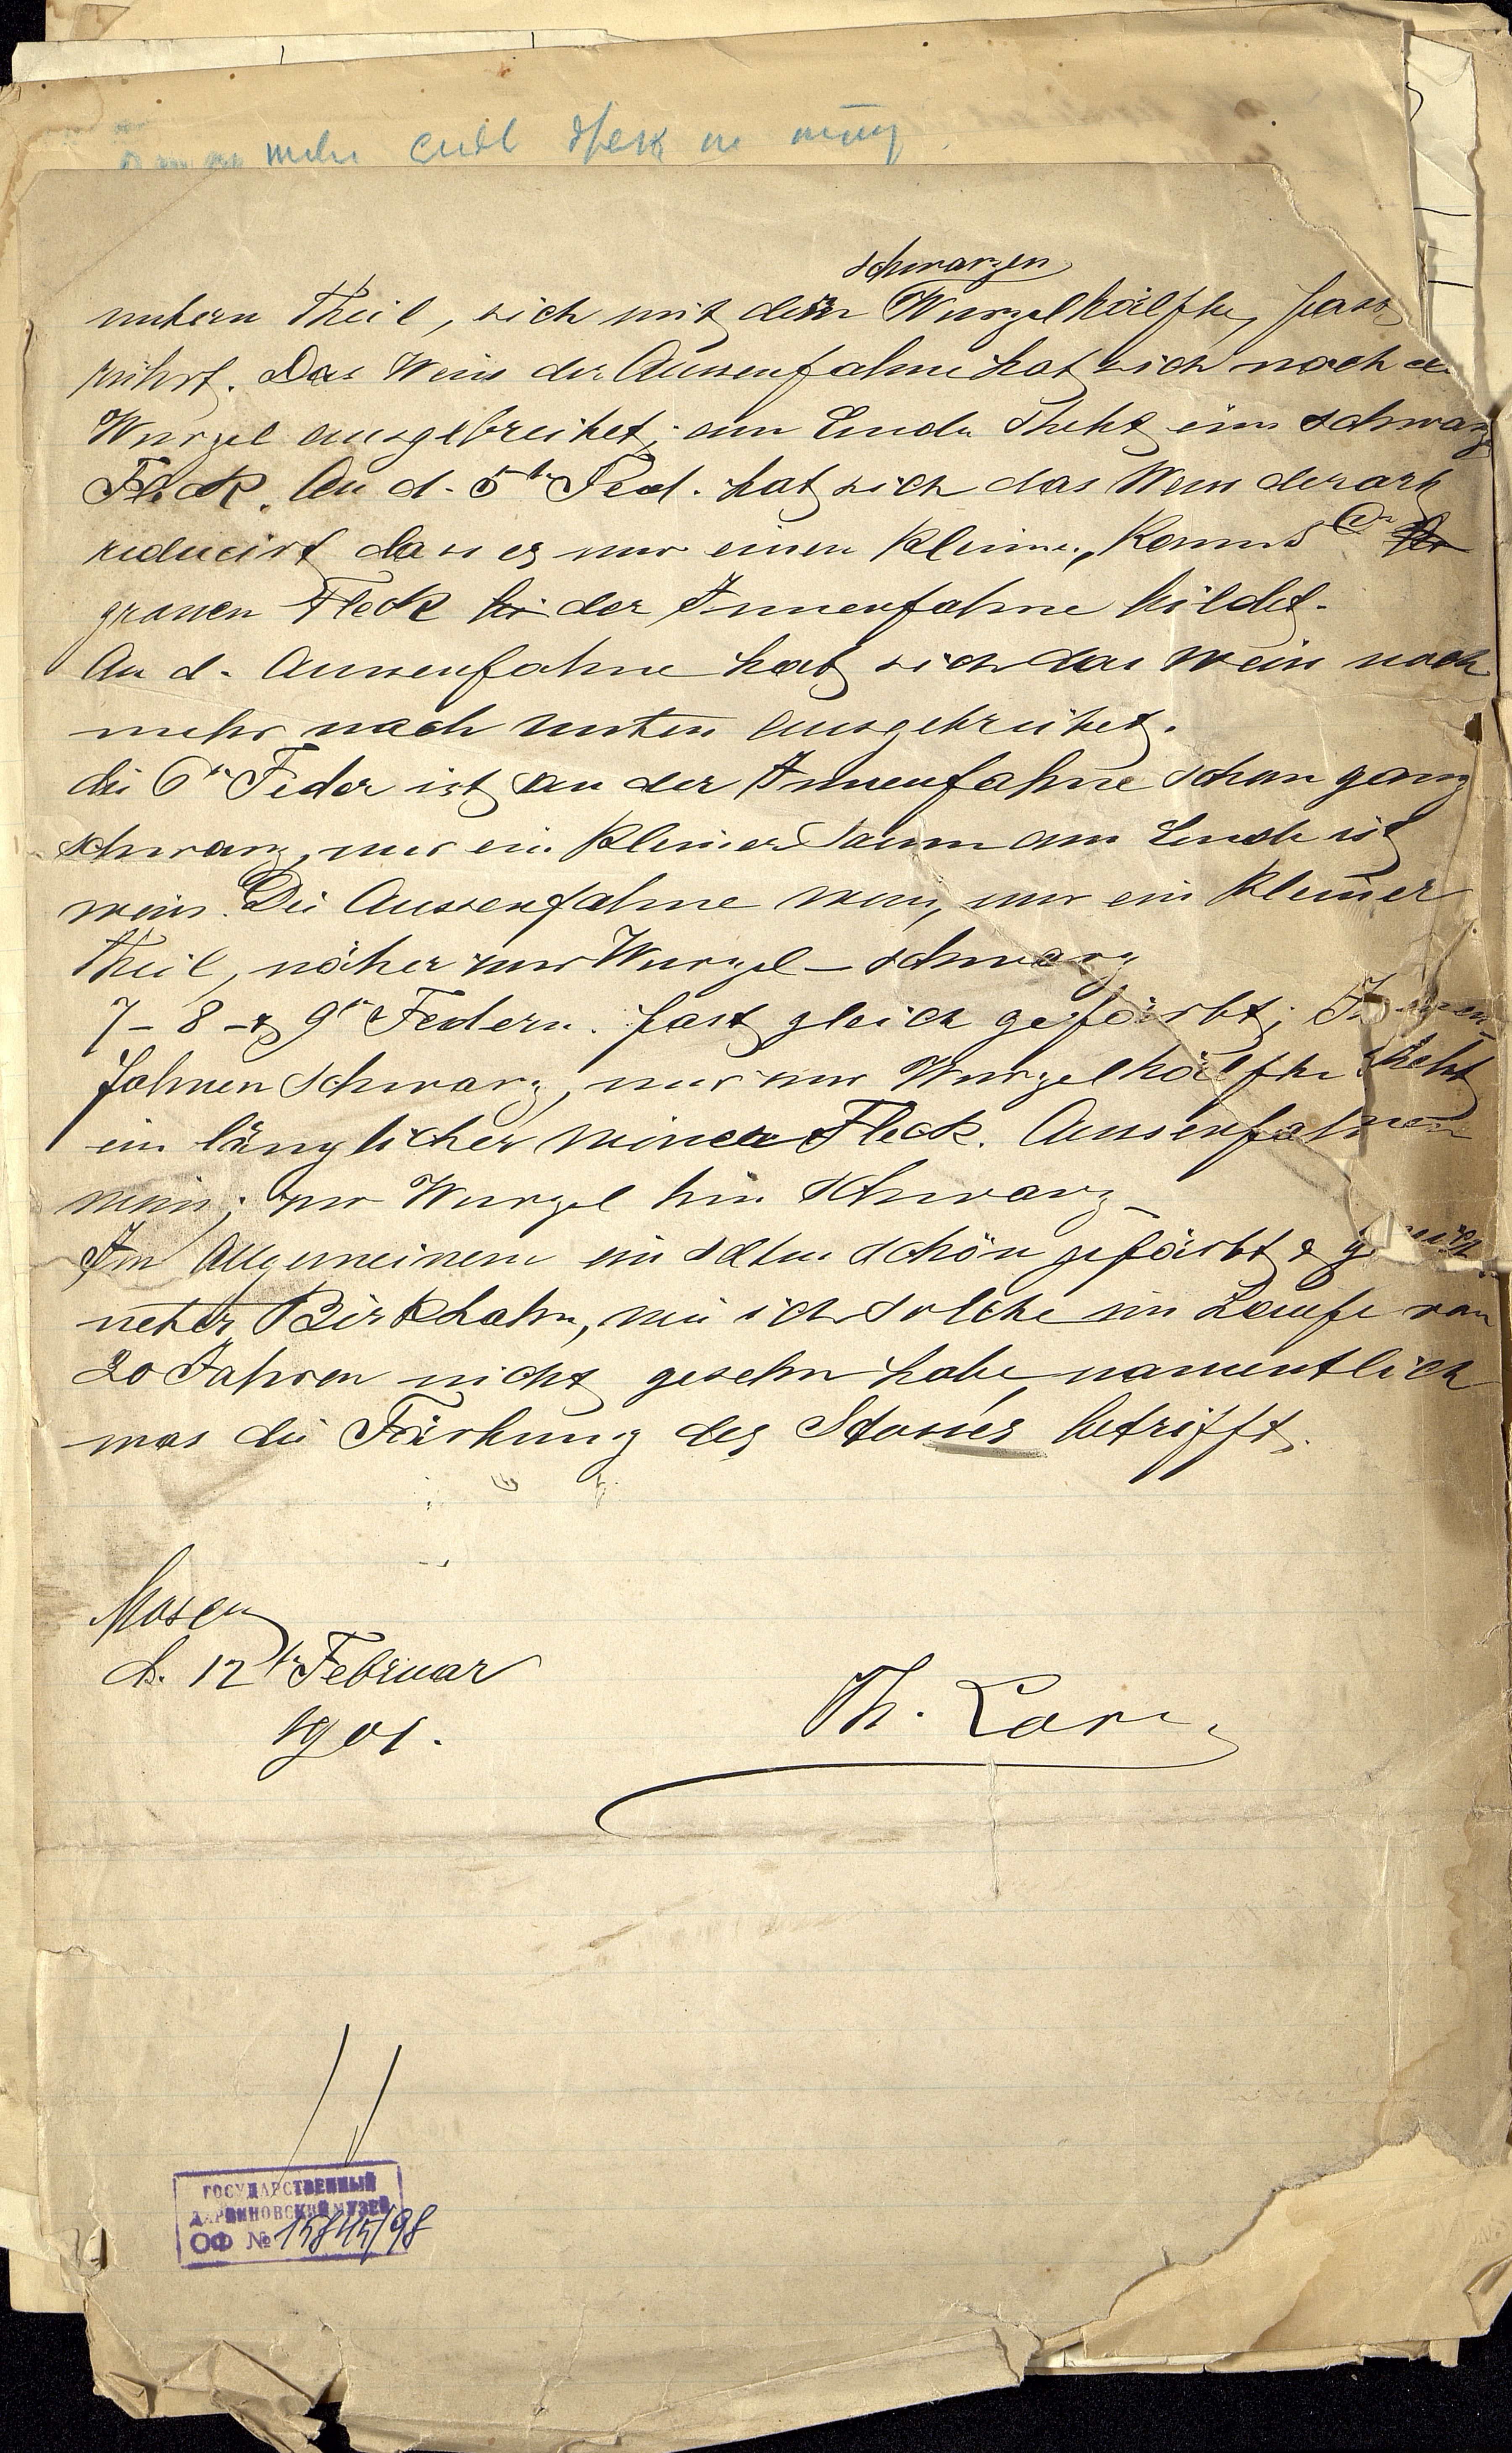 schwarzen
untern Theil, sich mit der Wurzelhälfte, fast
rührt. Das Weiss der Aussenfahne hat sich nach
Wurzel ausgebreitet; am Ende steht ein schwarz
Fleck. An d. 5te Fed. hat sich das Weiss derart
reducirt dass es nur einen kleinen,
grauen Fleck der Innenfahne bildet.
An d. Aussenfahne hat sich das Weiss noch
mehr nach unten ausgebreitet.
die 6te Feder ist an der Innenfahne schon ganz
schwarz, nur ein kleiner Saum am Ende ist
weiss. Die Aussenfahne weiss, nur ein kleiner
Theil, näher zur Wurzel – schwarz
7 – 8 – & 9te Federn. fast gleich gefärbt; Innen-
fahnen schwarz, nur zur Wurzelhälfte steht
ein länglicher weisser Fleck. Aussenfahnen
weiss; zur Wurzel hin schwarz –
Im Allgemeinen ein selten schön gefärbt &
neter Birkhahn, wie ich solche im Laufe von
20 Jahren nicht gesehn habe, namentlich
was die Färbung des Stosses betrifft.
d. 12te Februar
1901.
Th.
ГОСУДАРСТВЕННЫЙ
ДАРВИНОВСКИЙ МУЗЕЙ
ОФ № 15845/98